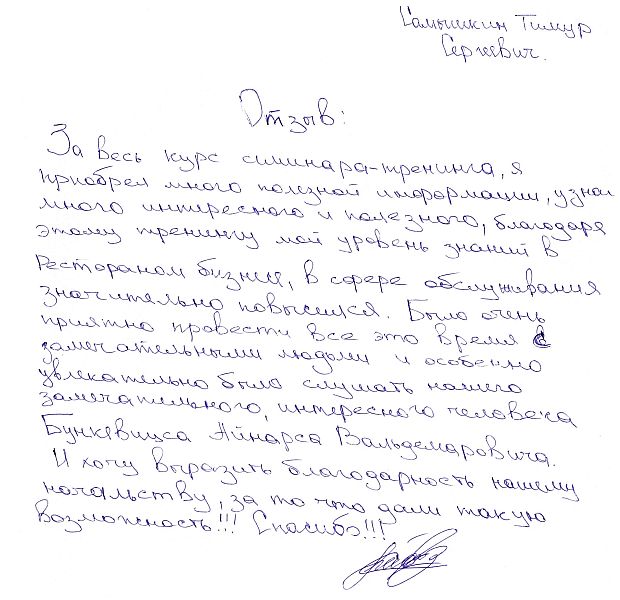 Самышкин Тимур
Сергеевич.
Отзыв:
За весь курс семинара-тренинга, я
приобрел много полезной информации, узнал
много интересного и полезного, благодаря
этому тренингу мой уровень знаний в
Ресторанном бизнесе, в сфере обслуживания
значительно повысился. Было очень
приятно провести все это время с
замечательными людьми и особенно
увлекательно было слушать нашего
замечательного, интересного человека
Бункевицса Айнарса Вальдемаровича.
И хочу выразить благодарность нашему
начальству, за то что дали такую
возможность!!! Спасибо!!!